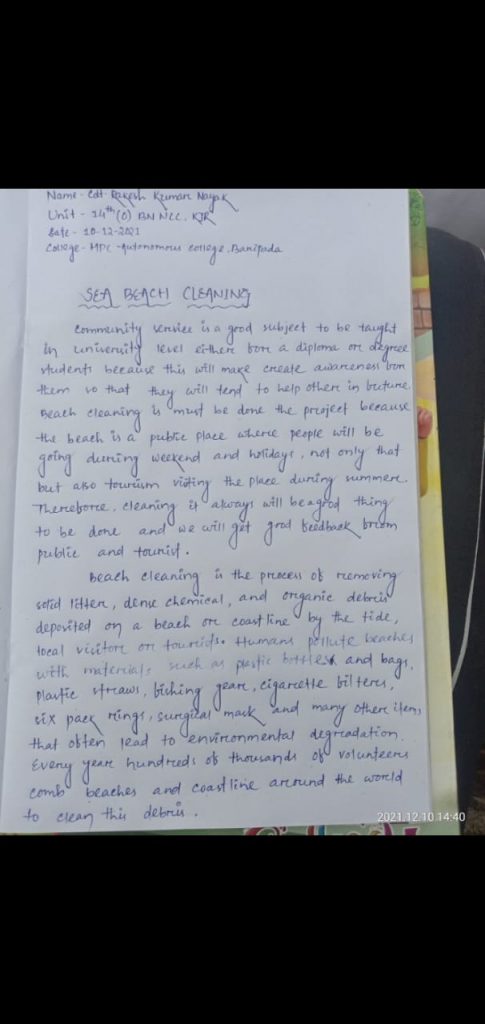 Name - Cdt. Rakesh Kumar Nayak
Unit - 14th (O) BN NCC. KJR
Date - 10-12-2021
College - MPC - Autonomous college, Baripada
SEA BEACH CLEANING
Community service is a good subject to be taught
in university level either for a diploma or degree
students because this will make create awareness for
them so that they will tend to help other in future.
Beach cleaning is must be done the project because
the beach is a public place where people will be
going during weekend and holidays, not only that
but also tourism visting the place during summer.
Therefore, cleaning it always will be a good thing
to be done and we will get good feedback from
public and tourist.
Beach cleaning is the process of removing
solid litter, dense chemical, and organic debris
deposited on a beach or coastline by the tide,
local visitor or tourists. Humans pollute beaches
with materials such as plastic bottles and bags,
plastic straws, fishing gear, cigarette filters,
six pack rings, surgical mask and many other items
that often lead to environmental degradation.
Every year hundreds of thousands of volunteers
comb beaches and coastline around the world
to clean this debris.
2021.12.10 14:40